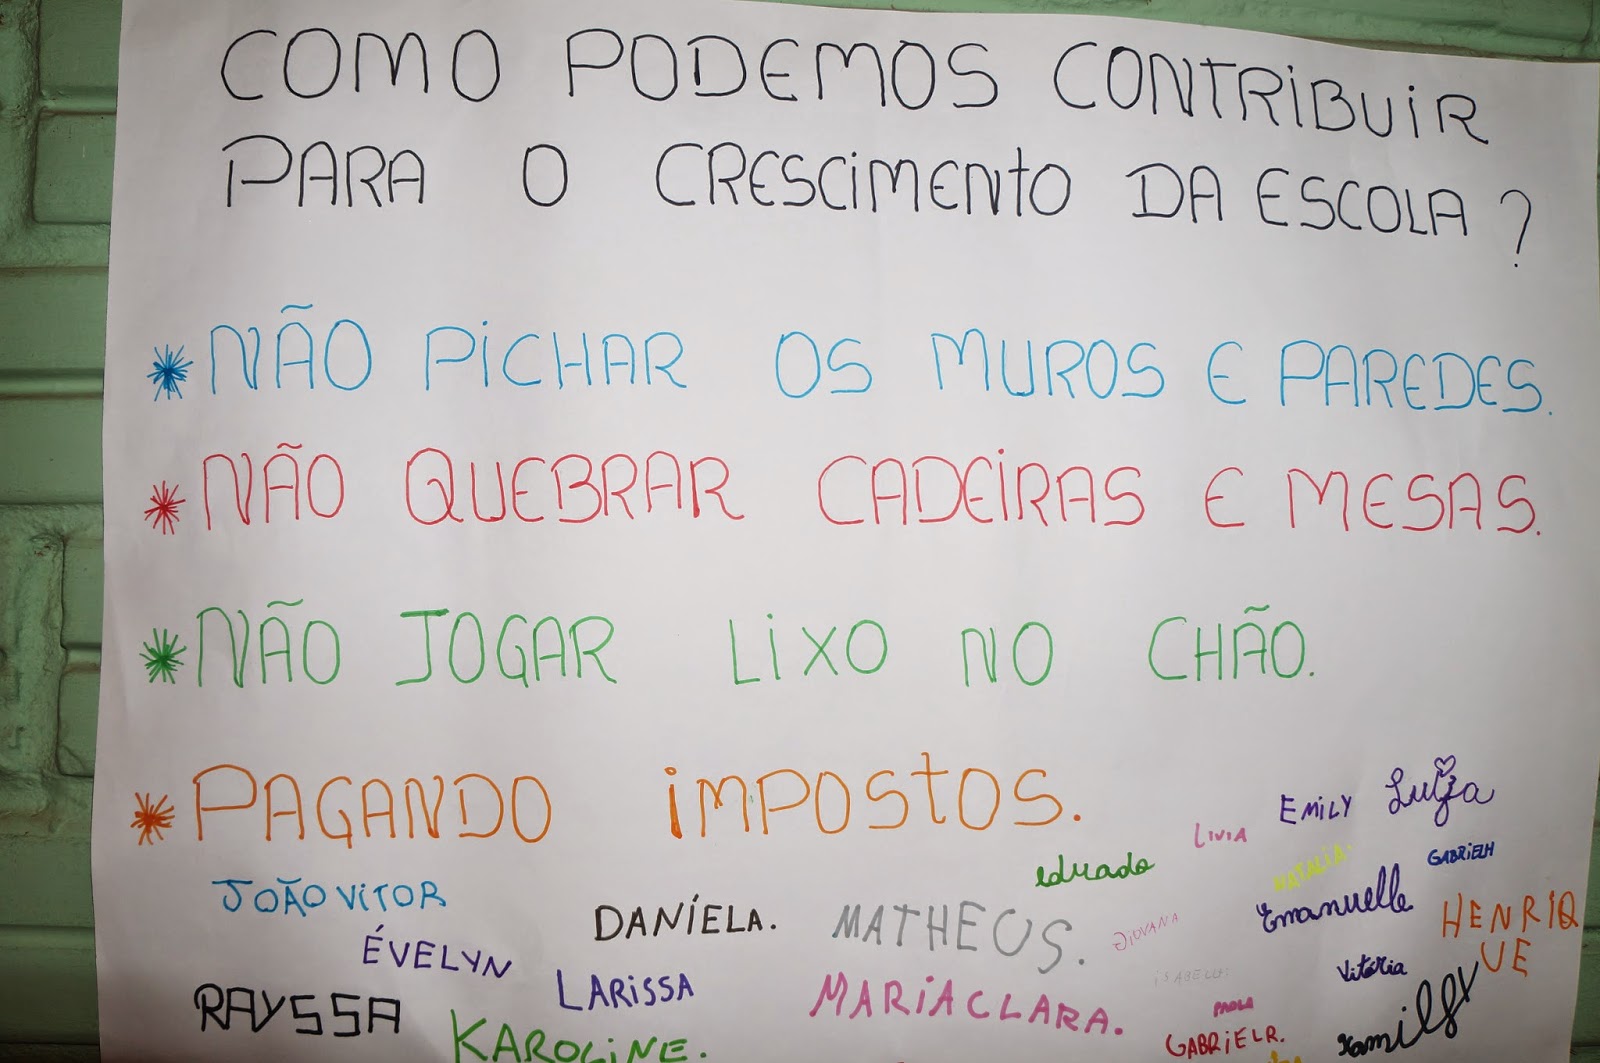 COMO PODEMOS CONTRIBUIR
PARA O CRESCIMENTO DA ESCOLA?
* NÃO PICHAR OS MUROS E PAREDES.
* NÃO QUEBRAR CADEIRAS E MESAS.
* NÃO JOGAR LIXO NO CHÃO.
* PAGANDO IMPOSTOS.
EMILY Luiza
LIVIA
eduardo NATALIA. GABRIELH
JOÃO VITOR DANÍELA. MATHEUS. GIOVANA Emanuelle HENRIQ
UE
ÉVELYN LARISSA ISABELLA Vitória
RAYSSA MARIA CLARA. PAOLA
KAROLINE. GABRIELR. Kamilly